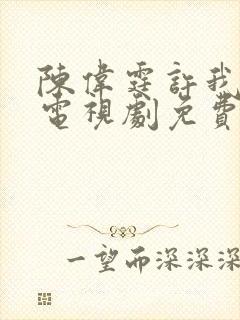 陳偉霆許我
電視劇免費
一望而深深深